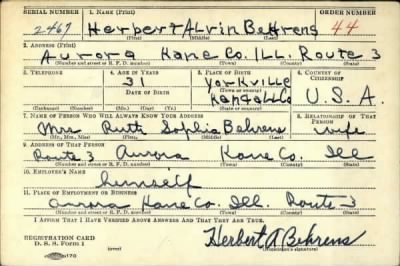 SERIAL NUMBER 1. NAME (Print) ORDER NUMBER
2467 Herbert Alvin Behrens 44
(First) (Middle) (Last)
2. ADDRESS (Print)
Aurora Kane Co. ILL. Route 3
(Number and street or R. F. D. number) (Town) (County) (State)
3. TELEPHONE 4. AGE IN YEARS 5. PLACE OF BIRTH 6. COUNTRY OF CITIZENSHIP
31 Yorkville
DATE OF BIRTH (Town or county)
Kendall Co U. S. A.
(Exchange) (Number) (Mo.) (Day) (Yr.) (State or country)
7. NAME OF PERSON WHO WILL ALWAYS KNOW YOUR ADDRESS 8. RELATIONSHIP OF THAT PERSON
Mrs Ruth Sophia Behrens wife
(Mr., Mrs., Miss) (First) (Middle) (Last)
9. ADDRESS OF THAT PERSON
Route 3 Aurora Kane Co. Ill
(Number and street or R. F. D. number) (Town) (County) (State)
10. EMPLOYER'S NAME
himself
11. PLACE OF EMPLOYMENT OR BUSINESS
Aurora Kane Co. Ill. Route 3
(Number and street or R. F. D. number) (Town) (County) (State)
I AFFIRM THAT I HAVE VERIFIED ABOVE ANSWERS AND THAT THEY ARE TRUE.
REGISTRATION CARD
D. S. S. Form 1
Herbert A Behrens
(Registrant's signature)